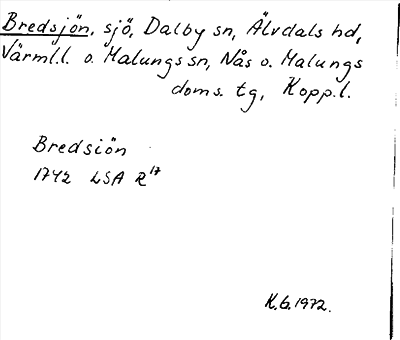 Bredsjön, sjö, Dalby sn, Älvdals hd,
Värml.l. o. Malungs sn, Nås o. Malungs
doms. tg, Kopp.l.
Bredsiön
1742 LSA R17
K.G.1972.